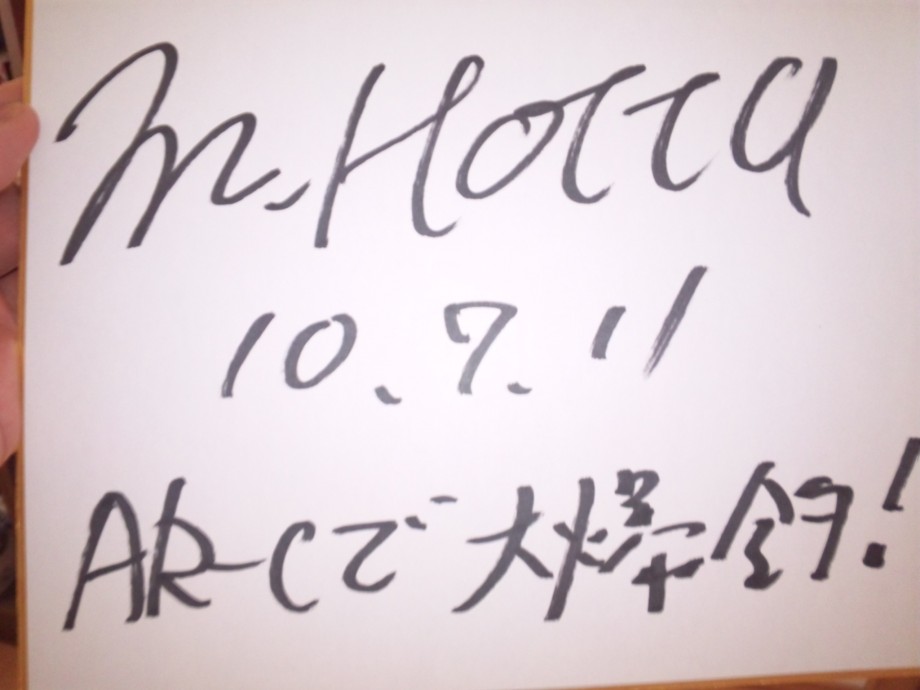 M. HOTTA
10.7.11
ARCで大爆釣!